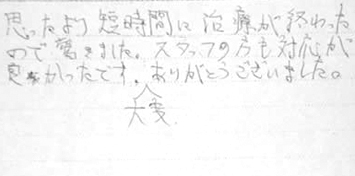 思ったより短時間に治療が終わった
ので驚きました。スタッフの方も対応が
良かったです。ありがとうございました。
大変